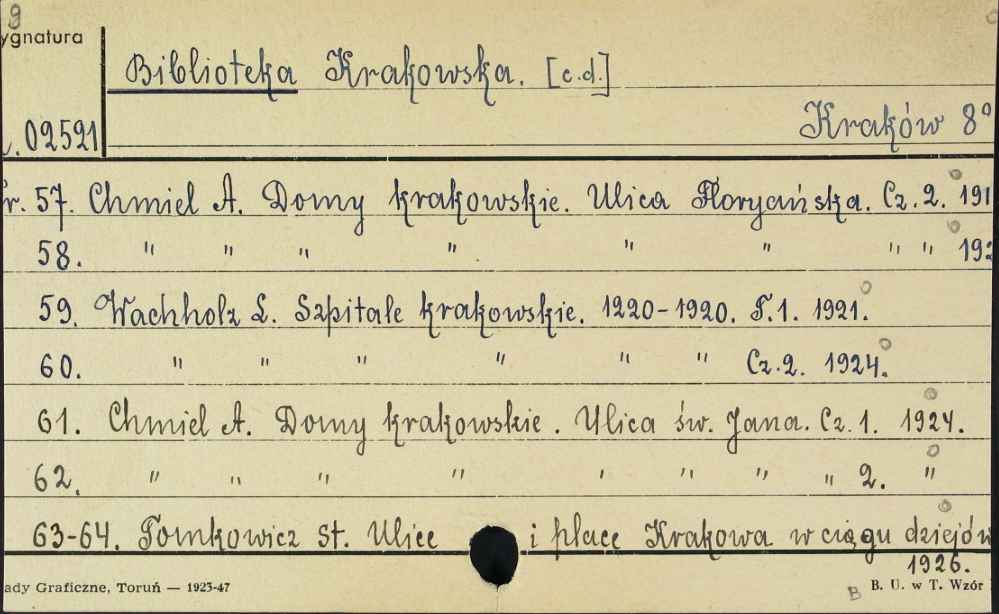 9
ygnatura
Biblioteka Krakowska. [c.d.]
Kraków 8°
02521
r. 57. Chmiel A. Domy krakowskie. Ulica Floryańska. Cz. 2. 191
58. " " " " " " " " 192
59. Wachholz L. Szpitale krakowskie. 1220-1920. T. 1. 1921.
60. " " " " " " Cz. 2. 1924.
61. Chmiel A. Domy krakowskie. Ulica św. Jana. Cz. 1. 1924.
62. " " " " " " " " 2. "
63-64. Tomkowicz St. Ulice i place Krakowa w ciągu dziejów
1926.
ady Graficzne, Toruń — 1923-47
B
B. U. w T. Wzór